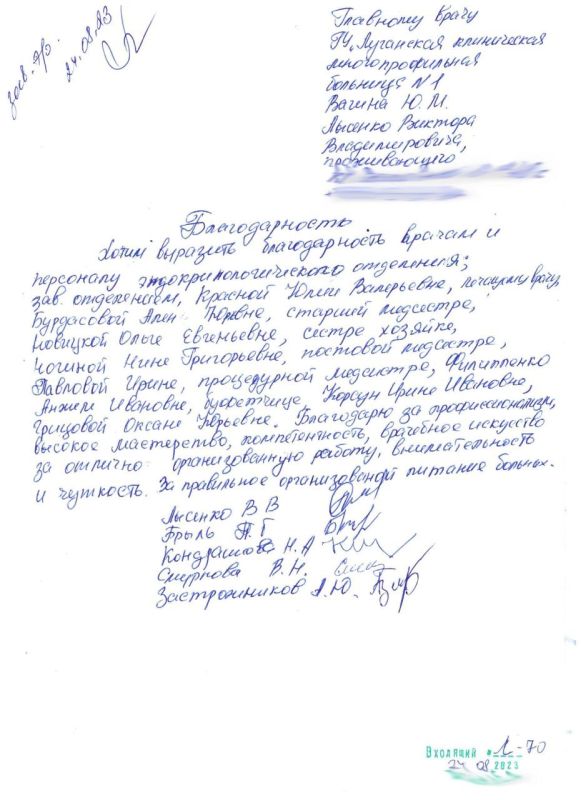 зав. эр.
24.08.23
Главному врачу
ГУ, Луганская клиническая
многопрофильная
больница N1
Вагина Ю.М.
Лысенко Виктора
Владимировича,
проживающего
Благодарность
Хотим выразить благодарность врачам и
персоналу эндокринологического отделения;
зав. отделением, Красной Юлии Валерьевне, лечащему врачу,
Бурдасовой Алёне Юрьевне, старшей медсестре,
Новицкой Ольге Евгеньевне, сестре хозяйке,
Чогиной Нине Григорьевне, постовой медсестре,
Павловой Ирине, процедурной медсистре, Филиппенко
Анжеле Ивановне, буфетчице Корсун Ирине Ивановне,
Грицовой Оксане Юрьевне. Благодарю за профессионализм,
высокое мастерство, компетентность, врачебное искусство
за отлично организованную работу, внимательность
и чуткость. За правильное организованой питание больных.
Лысенко В В
Брыль А Г
Кондрашова Н. А
Смирнова В. Н.
Застрожников А. Ю.
Входящий № 1-70
24 08 2023